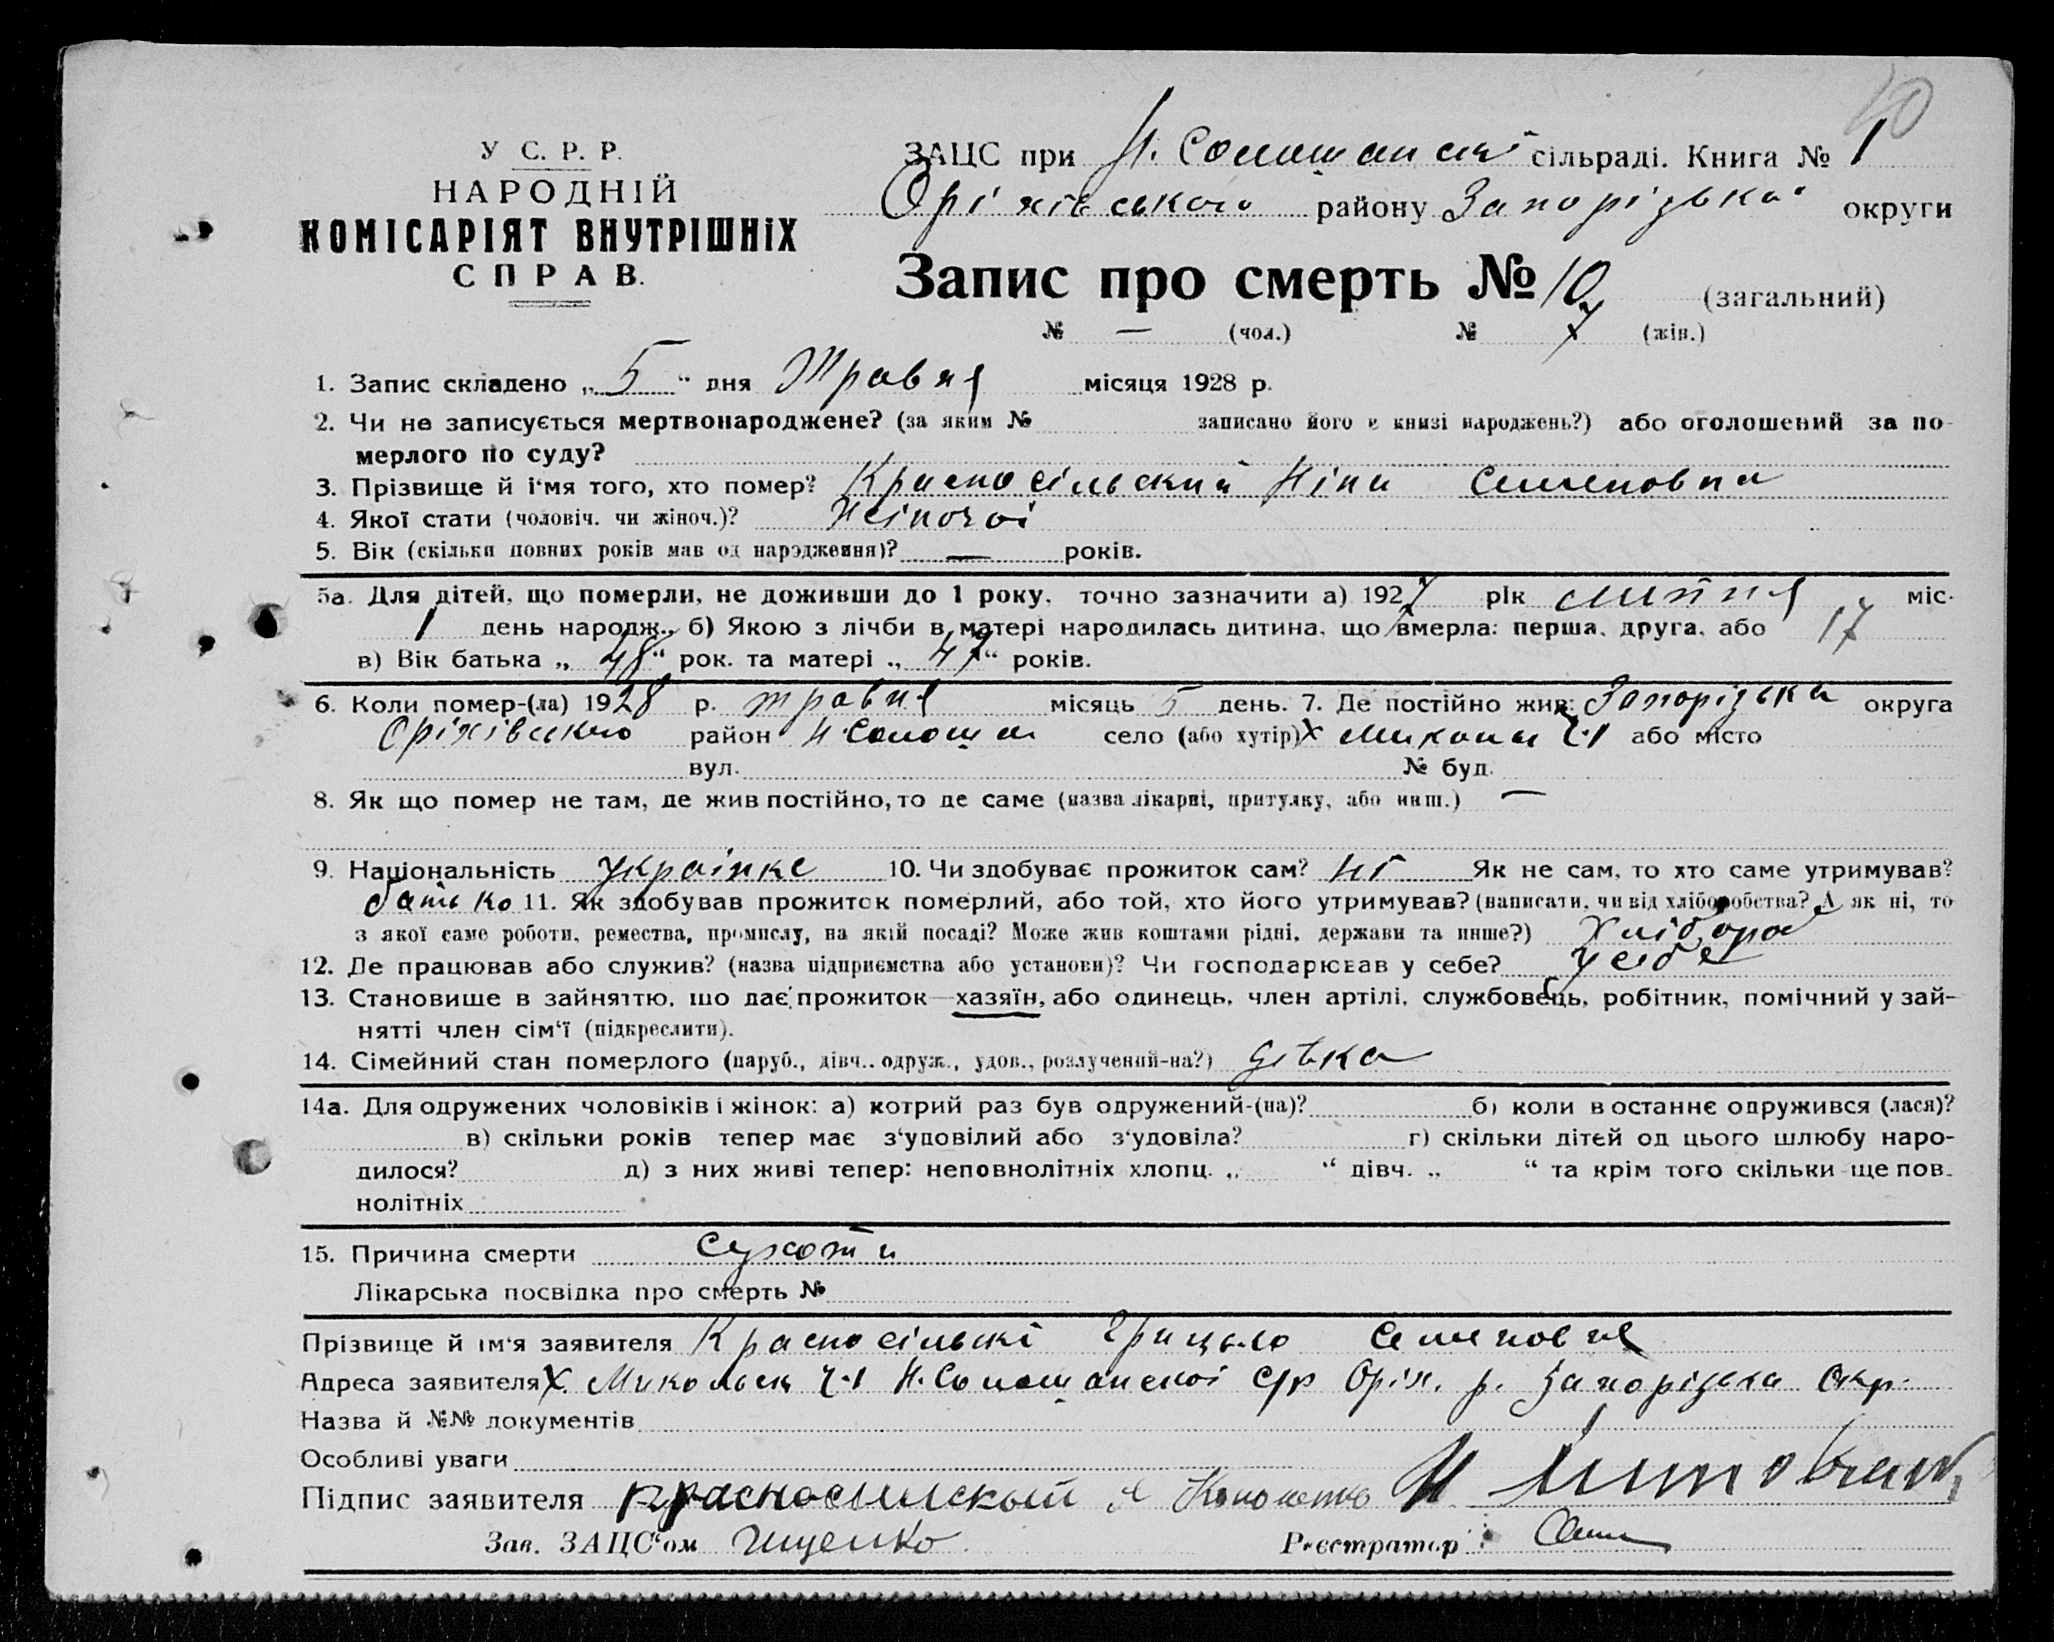 40
У С. Р. Р.
НАРОДНІЙ
КОМІСАРІЯТ ВНУТРІШНІХ
СПРАВ.
ЗАЦС при сільраді. Книга № 1
Оріхівського району Запорізької округи
Запис про смерть № 10 (загальний)
№ — (чол.) № 7 (жін.)
1. Запис складено „ 5 “ дня Травня місяця 1928 р.
2. Чи не записується мертвонароджене? (за яким № записано його в книзі народжень?) або оголошений за по-
мерлого по суду?
3. Прізвище й і'мя того, хто помер? Красносільский Ніна Семеновна
4. Якої стати (чоловіч. чи жіноч.)? Жіночої
5. Вік (скільки повних років мав од народження)? — років.
5а. Для дітей, що померли, не доживши до 1 року, точно зазначити а) 1927 рік липня міс.
1 день народж., б) Якою з лічби в матері народилась дитина, що вмерла: перша, друга, або 17
в) Вік батька „ 48 “ рок. та матері „ 47 “ років.
6. Коли помер-(ла) 1928 р. травня місяць 5 день. 7. Де постійно жив: Запорізька округа
Оріхівського район село (або хутір) х ч.1 або місто
вул. № буд.
8. Як що помер не там, де жив постійно, то де саме (назва лікарні, притулку, або инш.) —
9. Національність українка 10. Чи здобуває прожиток сам? ні Як не сам, то хто саме утримував?
батько 11. Як здобував прожиток померлий, або той, хто його утримував? (написати, чи від хліборобства? А як ні, то
з якої саме роботи, ремества, промислу, на якій посаді? Може жив коштами рідні, держави та инше?) Хлібороб
12. Де працював або служив? (назва підприємства або установи)? Чи господарював у себе? У себе
13. Становище в зайняттю, що дає прожиток—хазяїн, або одинець, член артілі, службовець, робітник, помічний у зай-
нятті член сім'ї (підкреслити).
14. Сімейний стан померлого (паруб., дівч., одруж., удов., розлучений-на?) дівка
14а. Для одружених чоловіків і жінок: а) котрий раз був одружений-(на)? б) коли в останнє одружився (лася)?
в) скільки років тепер має з'удовілий або з'удовіла? г) скільки дітей од цього шлюбу наро-
дилося? д) з них живі тепер: неповнолітніх хлопц. „ “ дівч. „ “ та крім того скільки ще пов-
нолітніх
15. Причина смерти Сухоти
Лікарська посвідка про смерть №
Прізвище й ім'я заявителя Красносільскі Грицько
Адреса заявителя Х. ч.1 с/р Оріх. р. Запорізька окр.
Назва й №№ документів
Особливі уваги
Підпис заявителя
Зав. ЗАЦС'ом Іщенко Реєстратор